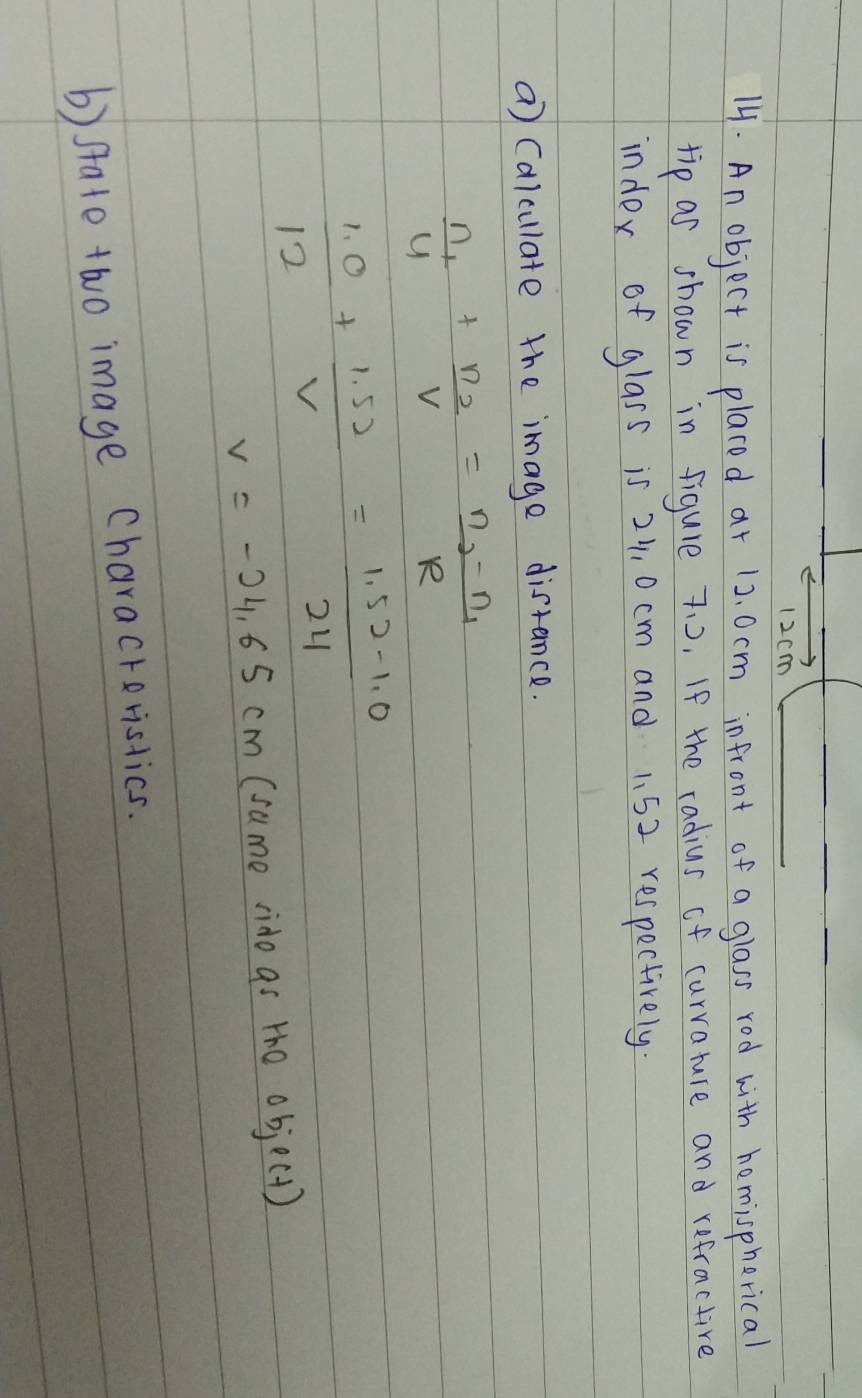 12cm
14. An object is placed at 12.0cm infront of a glass rod with hemispherical
tip as shown in figure 7.2. If the radius of curvature and refractive
index of glass is 24.0cm and 1.52 respectively.
a) Calculate the image distance.
n₁/u + n₂/v = n₂-n₁/R
1.0/12 + 1.52/v = 1.52-1.0/24
v = -24.65 cm (same side as the object)
b) State two image characteristics.